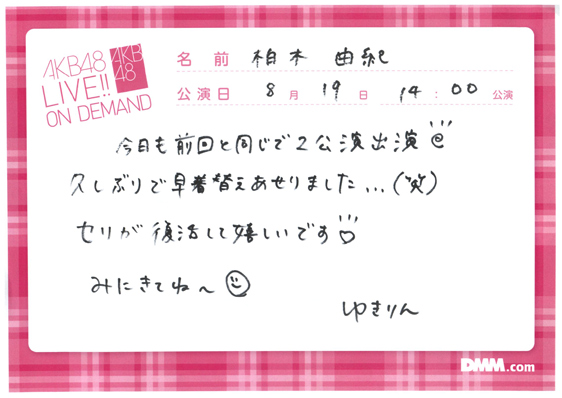 AKB48
LIVE!!
ON DEMAND
AKB
48
名前 柏木 由紀
公演日 8月19日 14:00公演
今日も前回と同じで2公演出演
久しぶりで早着替えあせりました...(笑)
セリが復活して嬉しいです♡
みにきてね〜
ゆきりん
DMM.com